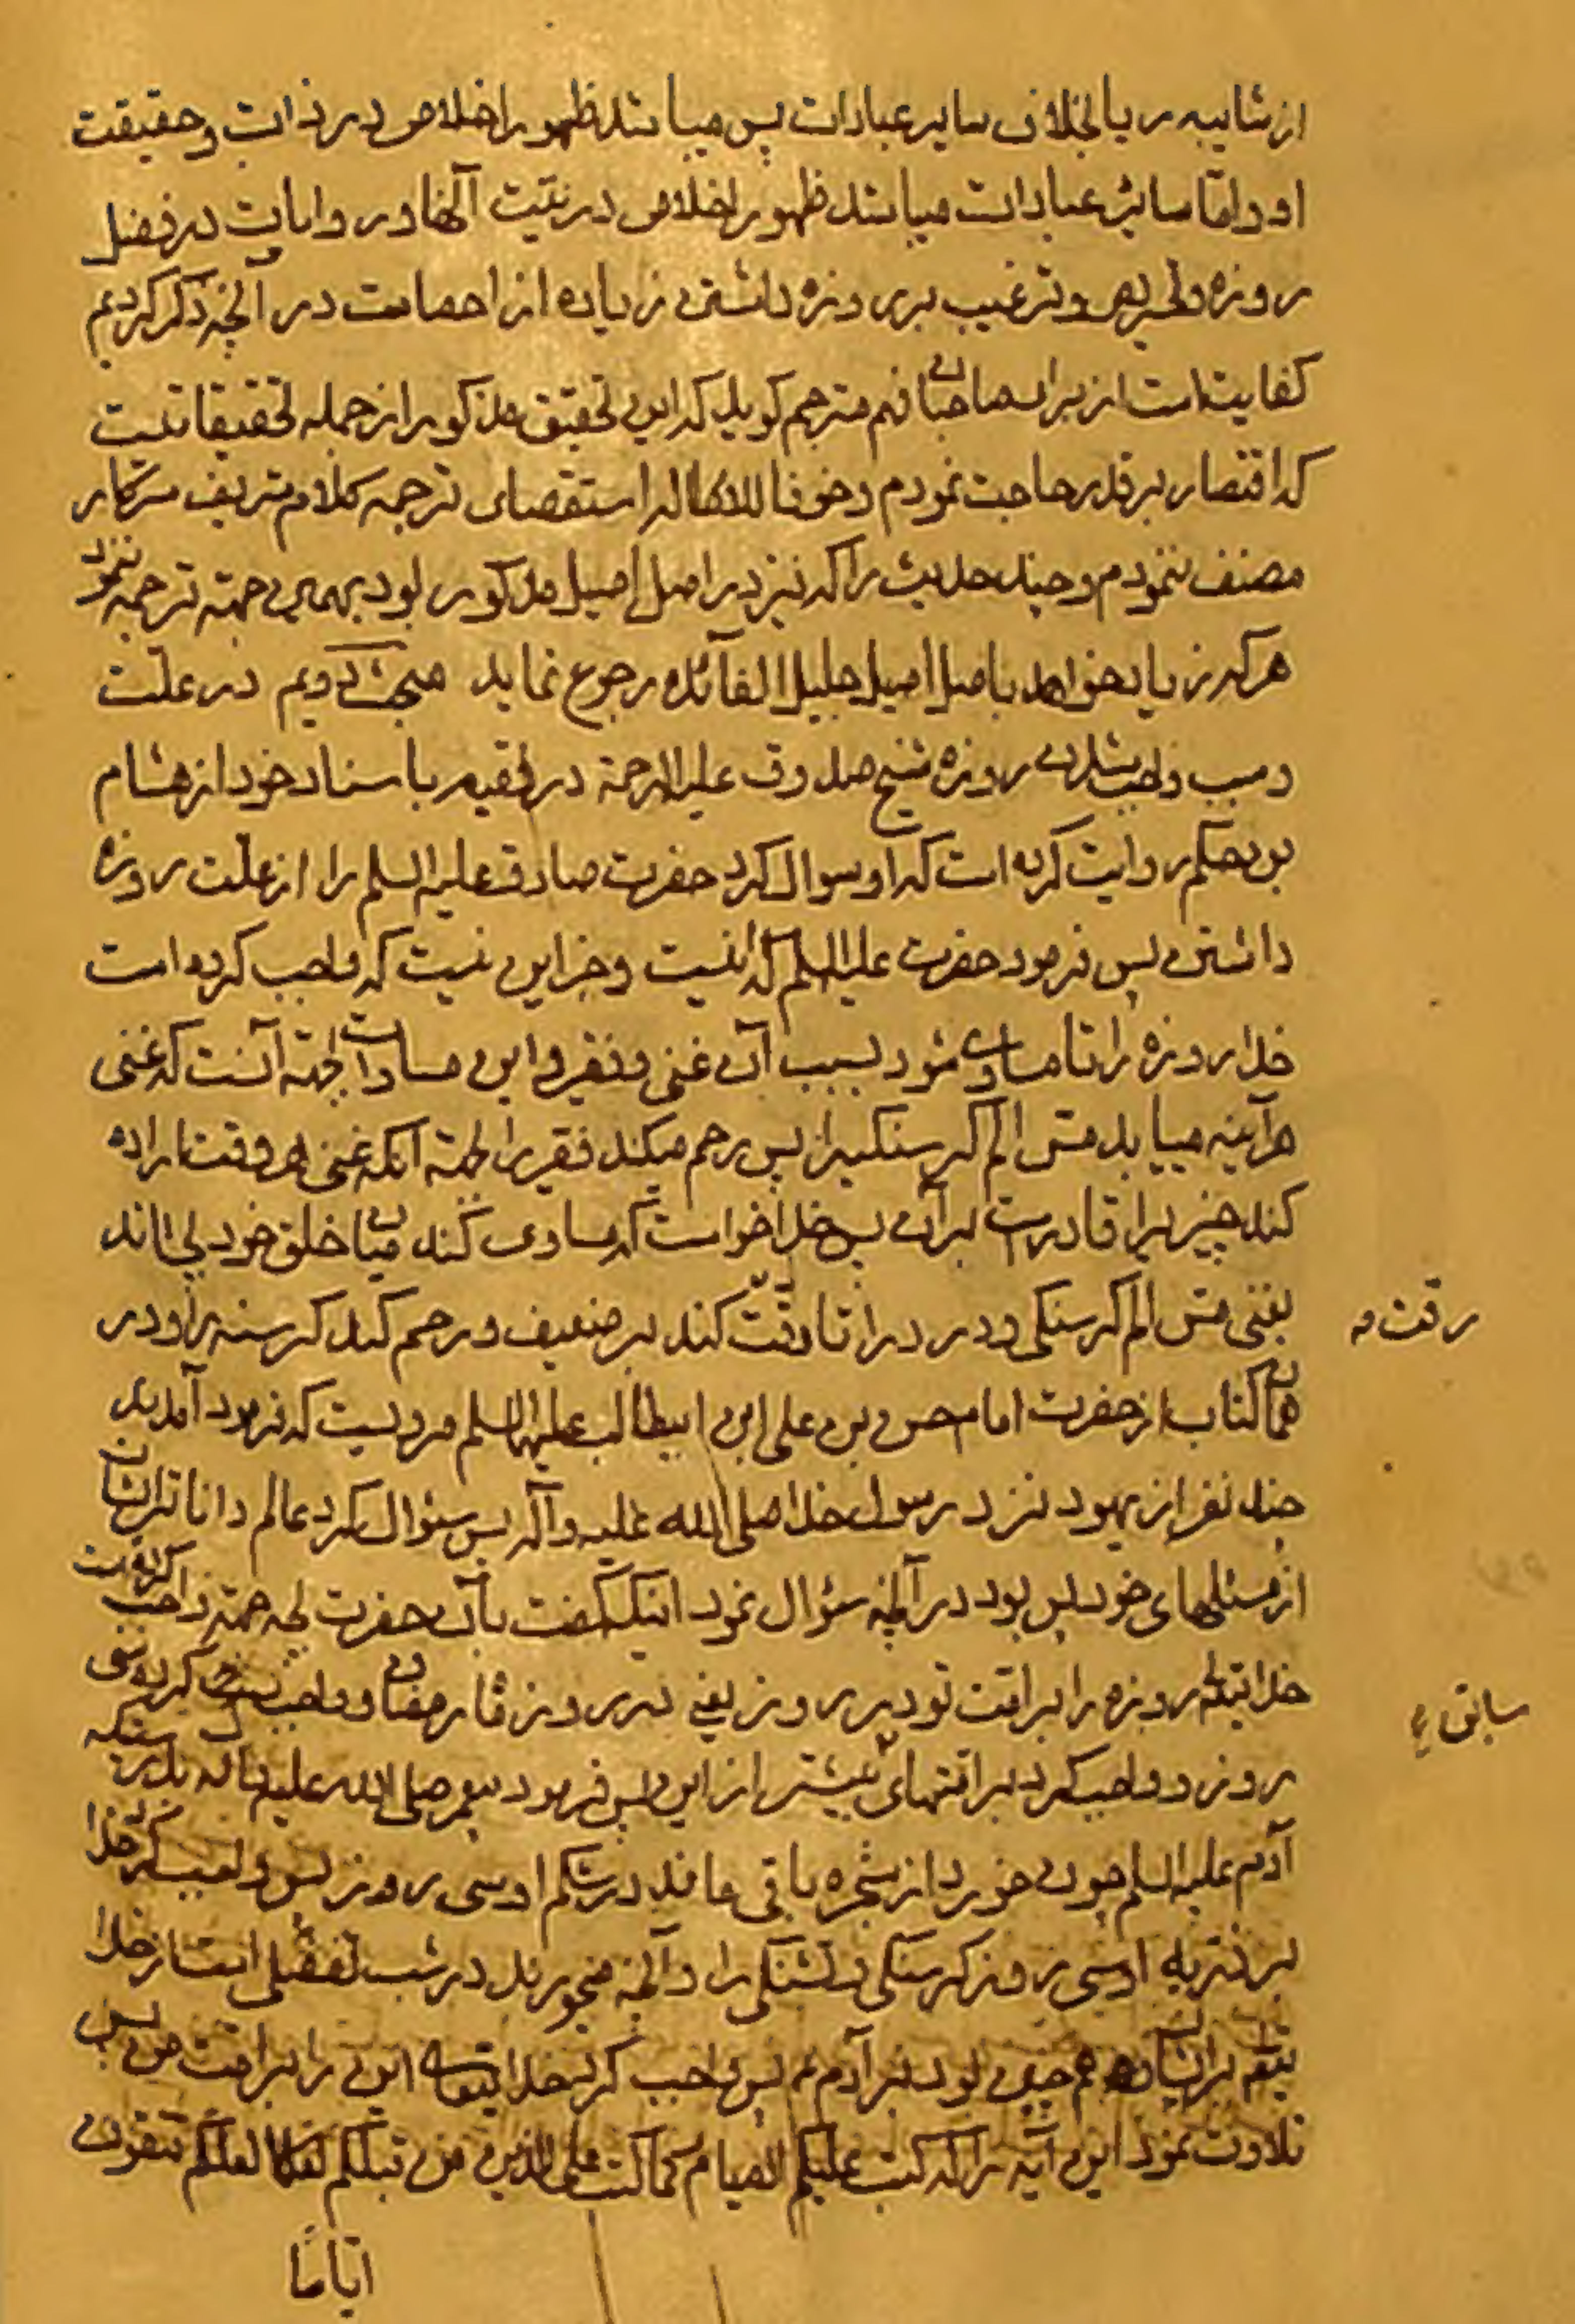 از شایبه ریا بخلاف سایر عبادات پس میباشد ظهور اخلاص در ذات و حقیقت
او و امّا سائر عبادات میباشد ظهور اخلاص در نیّت آنها و روایات در فضل
روزه و تحریص و ترغیب بر روزه داشتن زیاده از احصاست در آنچه ذکر کردیم
کفایتست از برای صاحبان فهم مترجم کوید که این تحقیق مذکور از جمله تحقیقاتیست
که اقتصار بر قدر حاجت نمودم و خوفا للاطاله استقصای ترجمه کلام شریف سرکار
مصنف ننمودم و چند حدیث را که نیز در اصل اصیل مذکور بود بهمین جهته ترجمه ننمود
هر که زیاد خواهد باصل اصیل جلیل الفائده رجوع نماید مبحث دویم در علّت
و سبب واجب شدن روزه شیخ صدوق علیه الرحمة در فقیه باسناد خود از هشام
بن حکم روایت کرده است که او سوال کرد حضرت صادق علیه السلم را از علّت روزه
داشتن پس فرمود حضرت علیه السلم که نیست و جز این نیست که واجب کرده است
خدا روزه را تا مساوی شود بسبب آن غنی و فقیر و این مساوات بجهته آنست که غنی
هرآینه مییابد مسّ الم کرسنکیرا پس رحم میکند فقیر را بجهته آنکه غنی هر وقت اراده
کند چیزیرا قادرست بر آن پس خدا خواست که مساوی کند میان خلق خود بچشاند
بغنی مس الم کرسنکی و درد را تا رقّت کند بر ضعیف و رحم کند کرسنه را و در
رقت مه
همان کتاب از حضرت امام حسن بن علی ابن ابیطالب علیهما السلم مرویست که فرمود آمدند
چند نفر از یهود نزد رسول خدا صلی الله علیه و آله پس سئوال کرد عالم داناتر ایشان
از مسئلهای خود پس بود در آنچه سؤال نمود اینکه کفت بآن حضرت بچه جهته واجب کرده است
خدایتعلی روزه را بر امّت تو در روز یعنی در روز ماه رمضان و واجب کرد سی
سابق
روز و واجب کرد بر امّتهای بیشتر از این پس فرمود پیغمبر صلی الله علیه و آله بدرستیکه
آدم علیه السلم چون خورد از شجره باقی ماند در شکم او سی روز پس واجب کرد خدا
بر ذریه او سی روز کرسنکی و تشنکی را و آنچه میخورند در شب تفضّلی است از خدا
بتعلی بر ایشان هم چنین بود بر آدم پس واجب کرد خدایتعالی این را بر امّت من پس
تلاوت نمود این آیه را که کتب علیکم الصیام کما کتب علی الذین من قبلکم لعلکم تتقون
ایّاماً